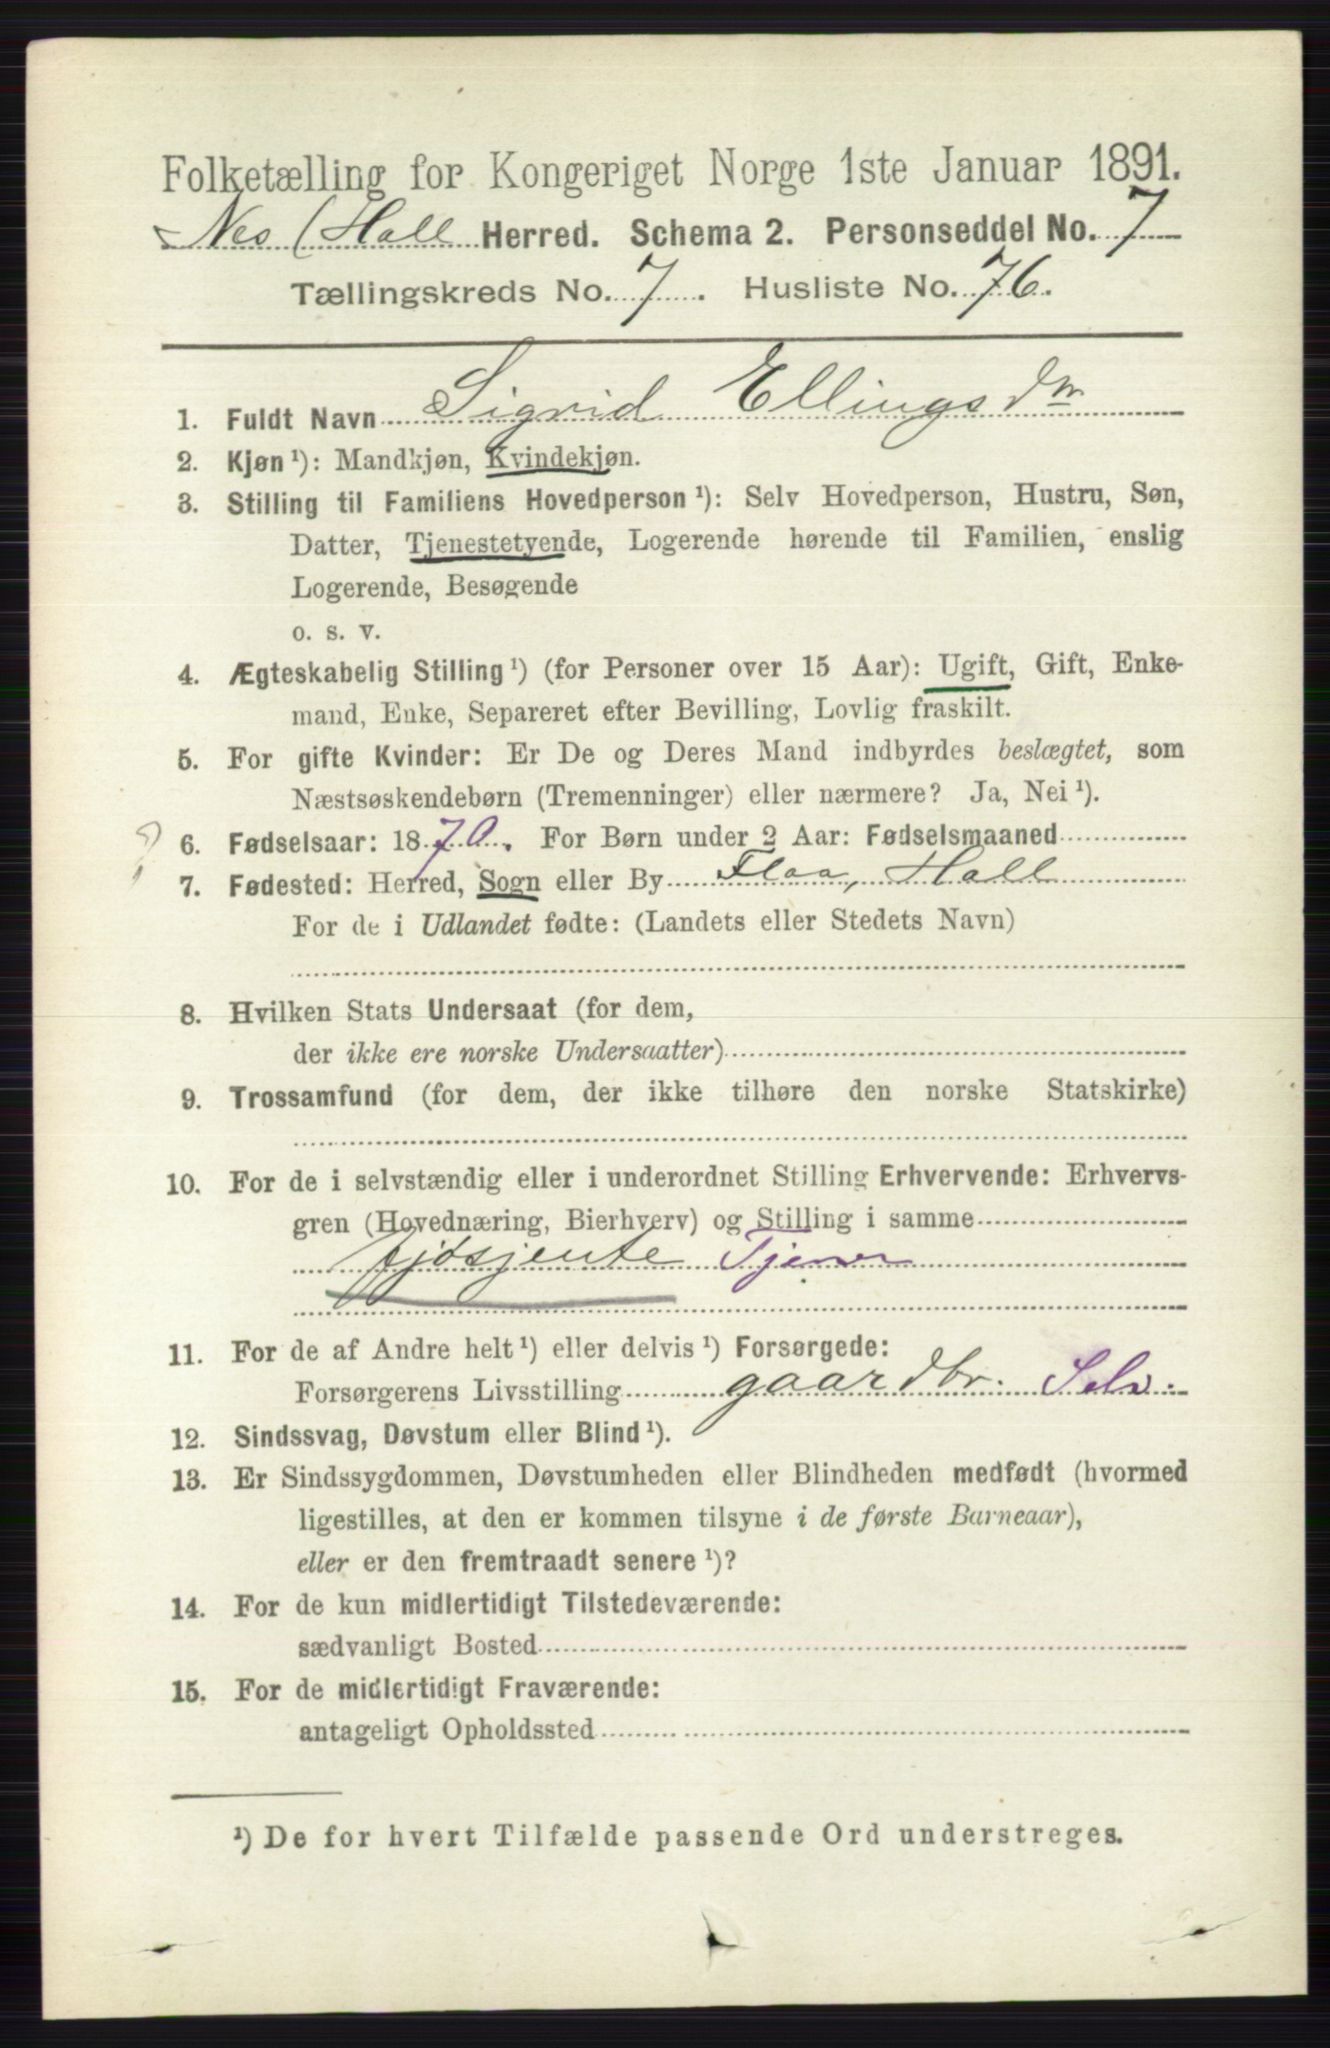 Folketælling for Kongeriget Norge 1ste Januar 1891.
Nes (Hall Herred. Schema 2. Personseddel No. 7
Tællingskreds No. 7. Husliste No. 76.
1. Fuldt Navn Sigrid Ellingsdtr
2. Kjøn ¹): Mandkjøn, Kvindekjøn.
3. Stilling til Familiens Hovedperson ¹): Selv Hovedperson, Hustru, Søn,
Datter, Tjenestetyende, Logerende hørende til Familien, enslig
Logerende, Besøgende
o. s. v.
4. Ægteskabelig Stilling ¹) (for Personer over 15 Aar): Ugift, Gift, Enke-
mand, Enke, Separeret efter Bevilling, Lovlig fraskilt.
5. For gifte Kvinder: Er De og Deres Mand indbyrdes beslægtet, som
Næstsøskendebørn (Tremenninger) eller nærmere? Ja, Nei ¹).
6. Fødselsaar: 1870. For Børn under 2 Aar: Fødselsmaaned
7. Fødested: Herred, Sogn eller By Flaa, Hall
For de i Udlandet fødte: (Landets eller Stedets Navn)
8. Hvilken Stats Undersaat (for dem,
der ikke ere norske Undersaatter)
9. Trossamfund (for dem, der ikke tilhøre den norske Statskirke)
10. For de i selvstændig eller i underordnet Stilling Erhvervende: Erhvervs-
gren (Hovednæring, Bierhverv) og Stilling i samme
fjøsjente Tjener
11. For de af Andre helt ¹) eller delvis ¹) Forsørgede:
Forsørgerens Livsstilling gaardbr. Selv.
12. Sindssvag, Døvstum eller Blind ¹).
13. Er Sindssygdommen, Døvstumheden eller Blindheden medfødt (hvormed
ligestilles, at den er kommen tilsyne i de første Barneaar),
eller er den fremtraadt senere ¹)?
14. For de kun midlertidigt Tilstedeværende:
sædvanligt Bosted
15. For de midlertidigt Fraværende:
antageligt Opholdssted
¹) De for hvert Tilfælde passende Ord understreges.